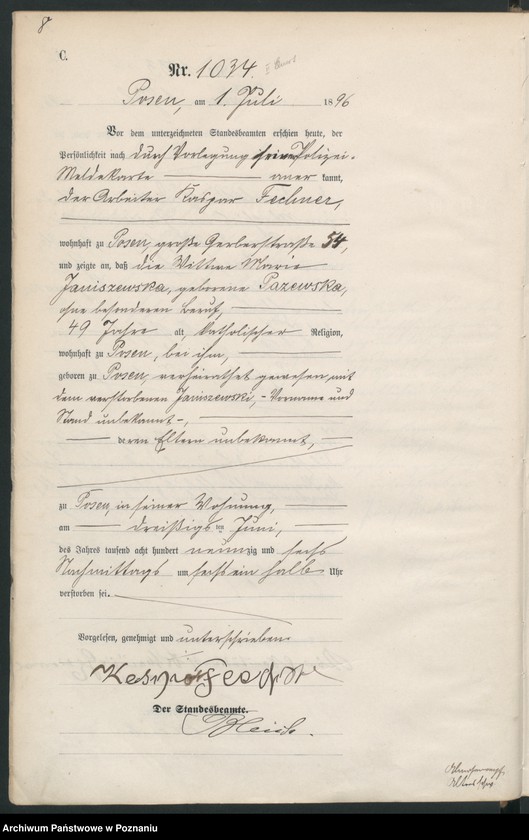 8
C.
Nr. 1034.
Posen, am 1. Juli 1896
Vor dem unterzeichneten Standesbeamten erschien heute, der
Persönlichkeit nach durch Vorlegung seiner Polizei-
Meldekarte anerkannt,
der Arbeiter Kaspar Fechner,
wohnhaft zu Posen, große Gerberstraße 54,
und zeigte an, daß die Wittwe Marie
Janiszewska, geborene Pazewska,
ohne besonderen Beruf,
49 Jahre alt, katholischer Religion,
wohnhaft zu Posen, bei ihm,
geboren zu Posen, verheirathet gewesen mit
dem verstorbenen Janiszewski, - Vorname und
Stand unbekannt -,
deren Eltern unbekannt,
zu Posen, in seiner Wohnung,
am dreißigsten Juni,
des Jahres tausend acht hundert neunzig und sechs
Nachmittags um sechs ein halb Uhr
verstorben sei.
Vorgelesen, genehmigt und unterschrieben
Der Standesbeamte.
Archiwum Państwowe w Poznaniu